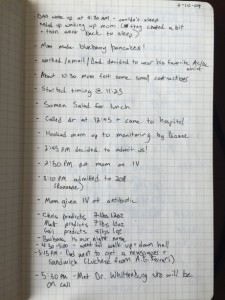 - Dad woke up at 4:30 am - couldn't sleep
- ended up waking up mom
- then went back to sleep)
- Mom made blueberry pancakes!
- worked/email/Dad decided to wear his favorite
- About 10:30 mom felt some small contractions
- Started timing @ 11:23
- Salmon Salad for lunch
- Called dr at 12:45 + came to hospital
- Hooked mom up to monitoring by
- 2:45 pm decided to admit us!
- 2:50 PM put mom on IV
- 3:10 PM admitted to 208
- Mom given IV of antibiotic
- Chris predicts 7 lbs 12oz
Matt predicts 7 lbs 10oz
predicts
- Barbara is our night
- 4:30-5:00 - went for walk up + down hall
- 5:15 PM - Dad went to get a newspaper +
Sandwich
- 5:30 AM - Met Dr. Whittenburg who will be
on call